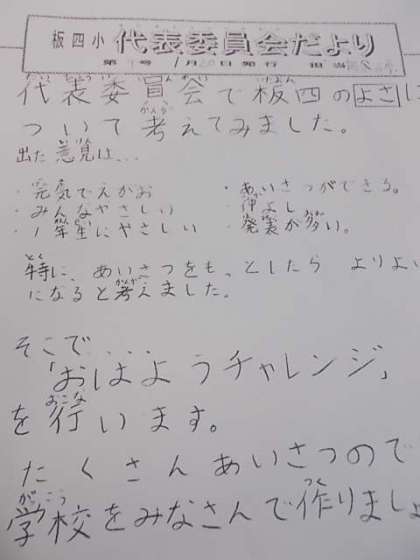 板四小 代表委員会だより
第 号 1月20日発行 担当
代表委員会で板四のよさに
ついて考えてみました。
出た意見は…
・元気でえがお ・あいさつができる。
・みんなやさしい ・仲よし
・1年生にやさしい ・発言が多い。
特に、あいさつをもっとしたら よりよい
になると考えました。
そこで...
「おはようチャレンジ」
を行います。
たくさんあいさつので
学校をみなさんで作りましょ